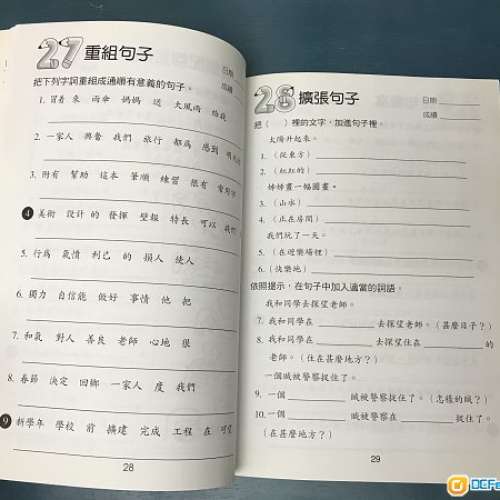 27 重組句子
日期
成績
把下列字詞重組成通順有意義的句子。
1. 冒着 來 雨傘 媽媽 送 大風雨 給我
2. 一家人 興奮 我們 旅行 都為 感到
3. 附有 幫助 這本 筆順 練習 很有
4 美術 設計 的 發揮 壁報 特長 可以 我們
5. 行為 氣憤 利己 的 損人 使人
6. 獨力 自信能 做好 事情 他 把
7. 和氣 對人 善良 老師 心地 很
8. 春節 決定 回鄉 一家人 度 我們
9 新學年 學校 前 擴建 完成 工程 在 可望
28
28 擴張句子
日期
成績
把（ ）裡的文字，加進句子裡。
太陽升起來。
1. （從東方）
2. （紅紅的）
姊姊畫一幅圖畫。
3. （山水）
4. （正在房間）
我們玩了一天。
5. （在遊樂場裡）
6. （快樂地）
依照提示，在句子中加入適當的詞語。
我和同學去探望老師。
7. 我和同學在 去探望老師。（甚麼日子？）
8. 我和同學去探望住在 的
老師。（住在甚麼地方？）
一個賊被警察捉住了。
9. 一個 賊被警察捉住了。（怎樣的賊？）
10. 一個 賊被警察在 捉住了。
（在甚麼地方？）
29